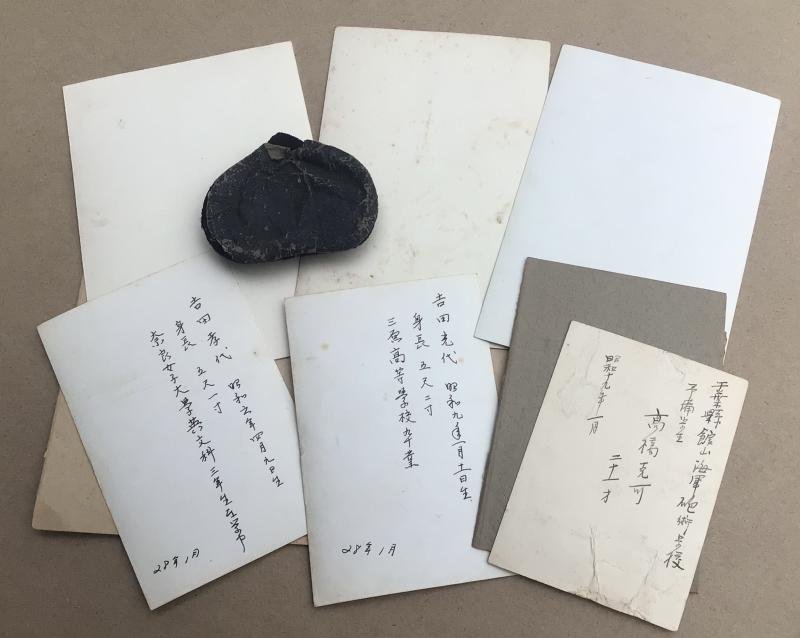 吉田孝代　昭和六年四月九日生
身長　五尺一寸
奈良女子大学英文科三年生在学中
28年1月
吉田克代　昭和九年一月十一日生
身長　五尺二寸
高等学校卒業
28年1月
千葉縣館山海軍砲術学校
高橋克可
二十一才
昭和十九年一月